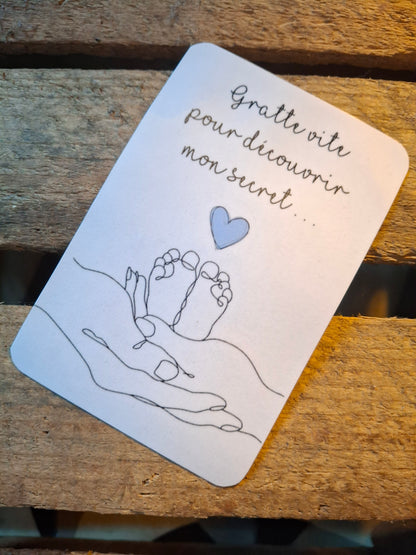 Gratte vite
pour découvrir
mon secret...